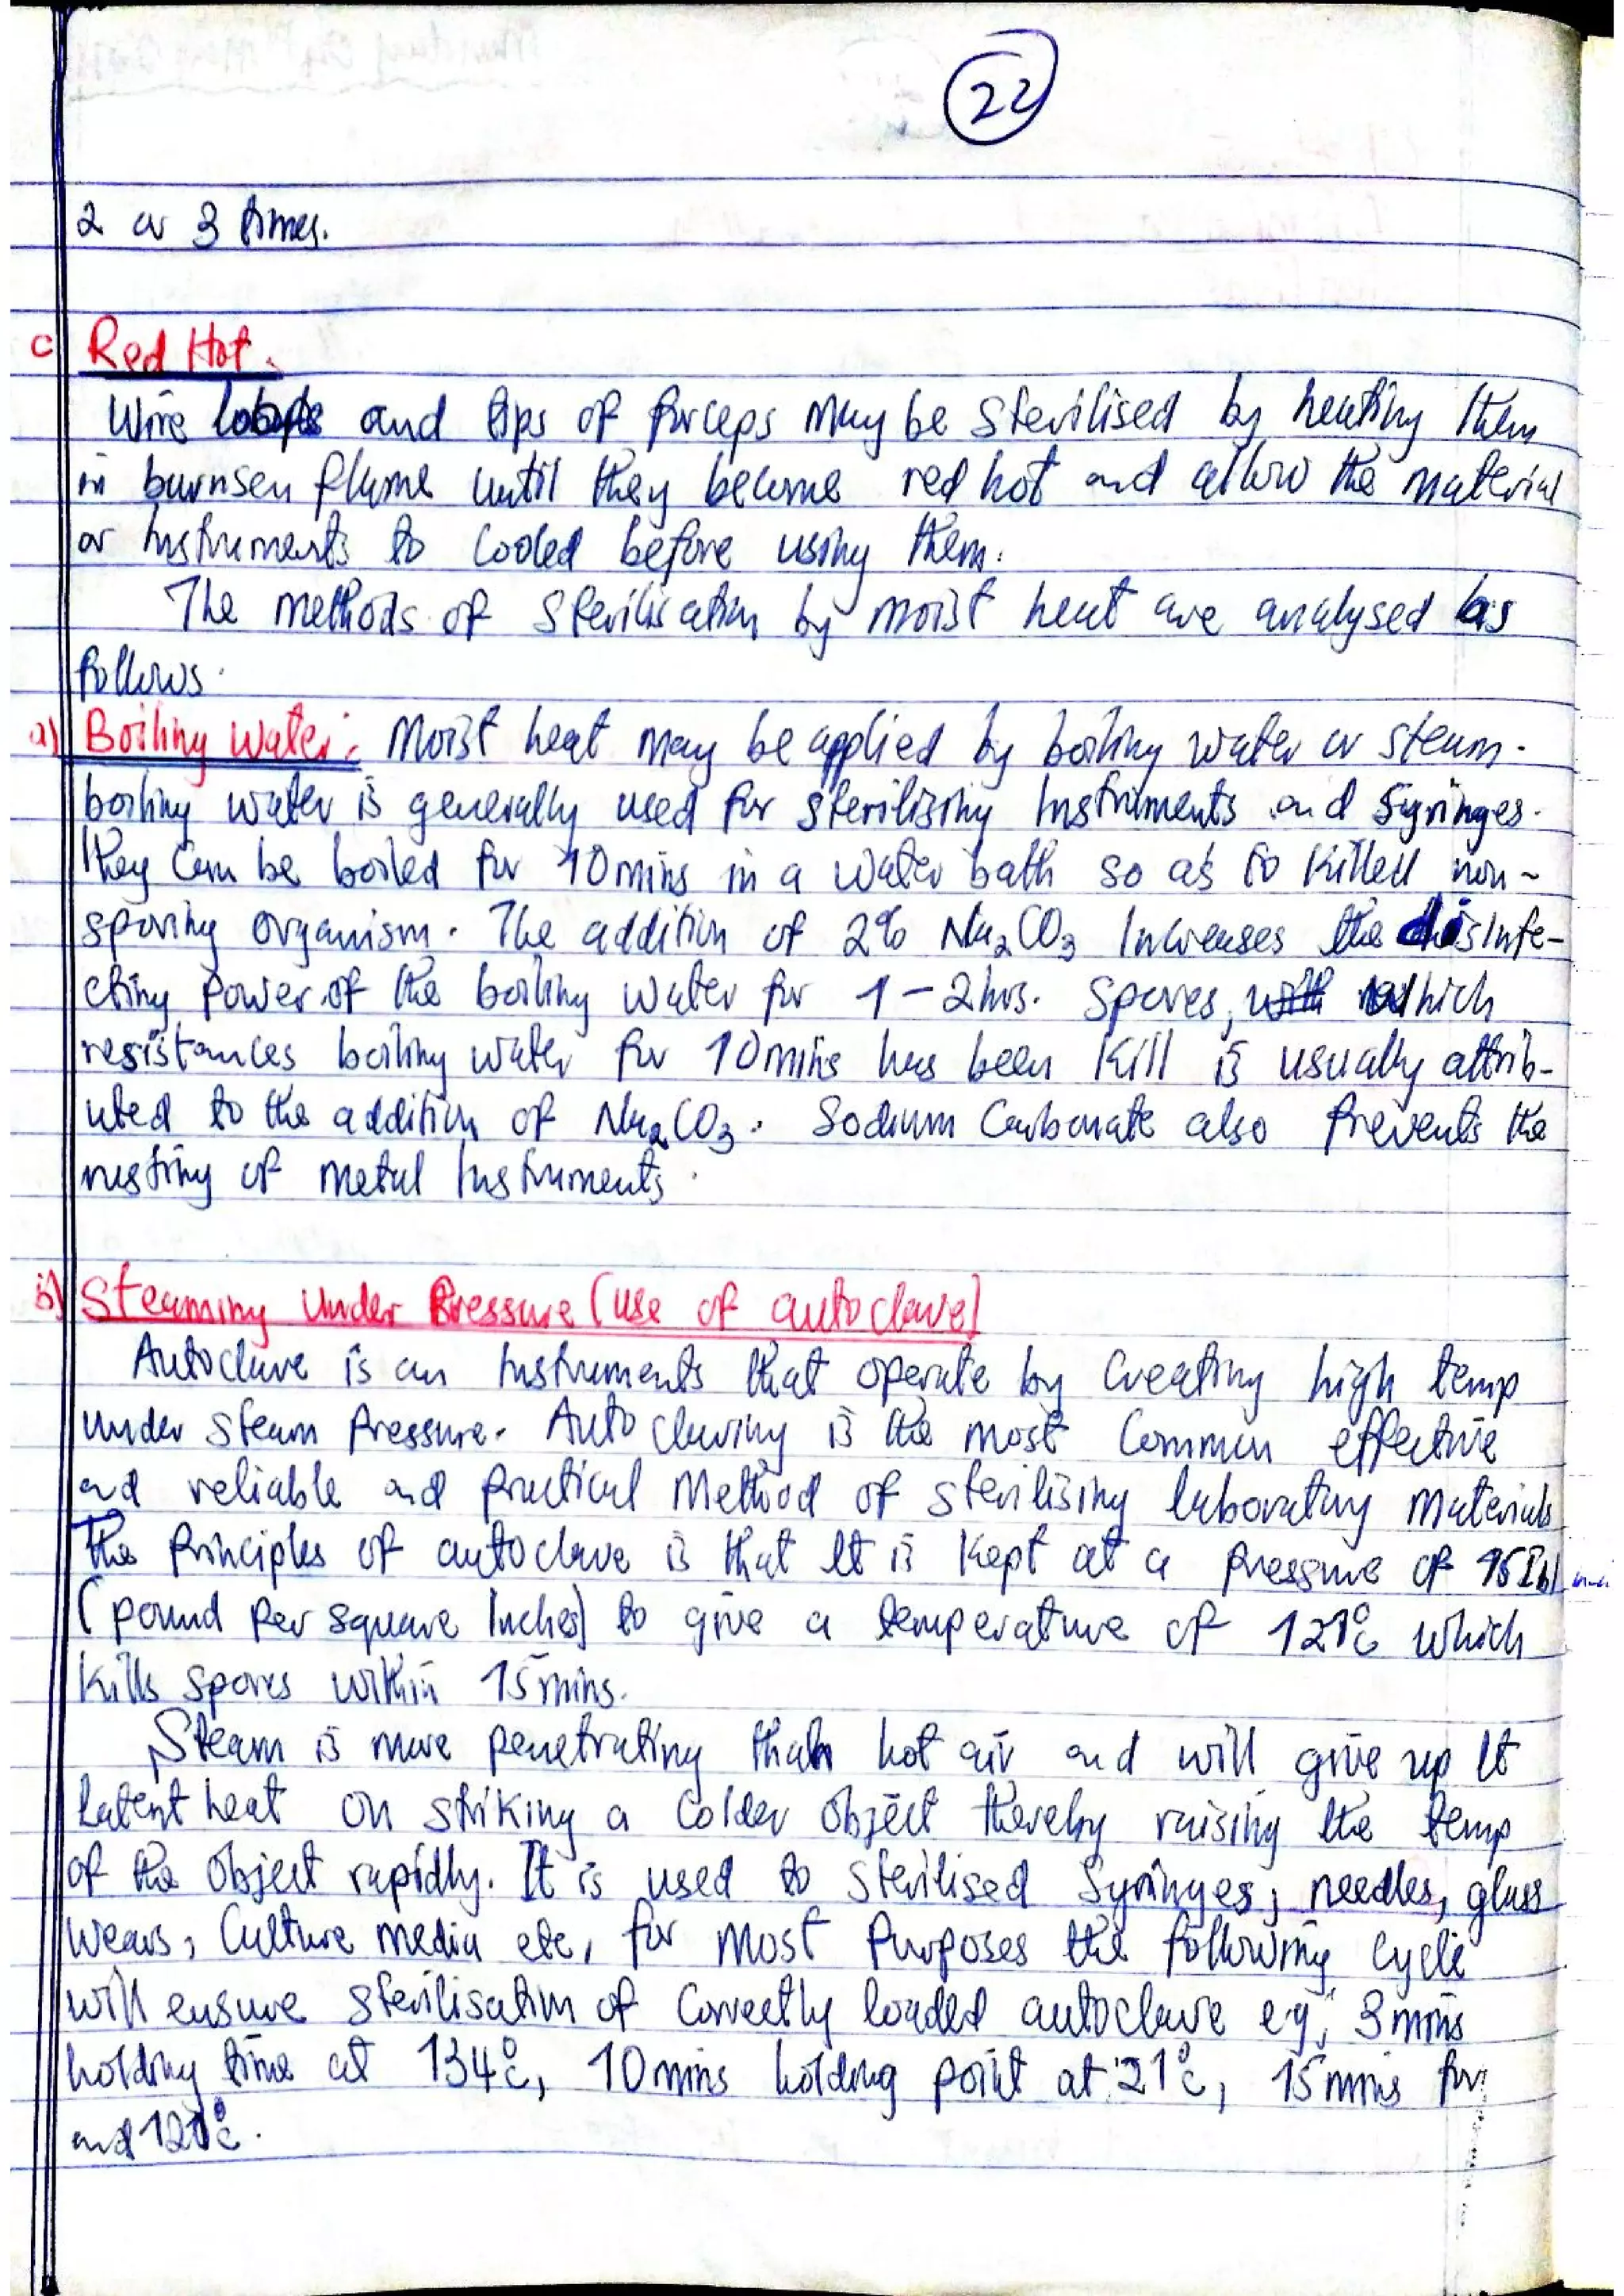 22
2 or 3 times.
c Red Hot.
Wire loops and tips of forceps may be sterilised by heating them
in burnsen flame until they become red hot and allow the material
or instruments to cooled before using them.
The methods of sterilisation by moist heat are analysed as
follows.
a) Boiling water: Moist heat may be applied by boiling water or steam.
boiling water is generally used for sterilising instruments and syringes.
They can be boiled for 10mins in a water bath so as to killed non-
sporing organism. The addition of 2% Na2CO3 increases the disinfe-
cting power of the boiling water for 1-2hrs. Spores, which
resistances boiling water for 10mins has been kill is usually attrib-
uted to the addition of Na2CO3. Sodium Carbonate also prevents the
rusting of metal instruments.
b) Steaming Under Pressure (use of autoclave)
Autoclave is an instruments that operate by creating high temp
under steam pressure. Autoclaving is the most common effective
and reliable and practical method of sterilising laboratory materials
The principles of autoclave is that it is kept at a pressure of 15Ib/
(pound per square inches) to give a temperature of 121°c which
kills spores within 15mins.
Steam is more penetrating than hot air and will give up it
latent heat on striking a colder object thereby raising the temp
of the object rapidly. It is used to sterilised syringes, needles, glass
wears, culture media etc, for most purposes the following cycle
will ensure sterilisation of correctly loaded autoclave eg; 3mins
holding time at 134°c, 10mins holding point at 21°c, 15mins for
and 121°c.